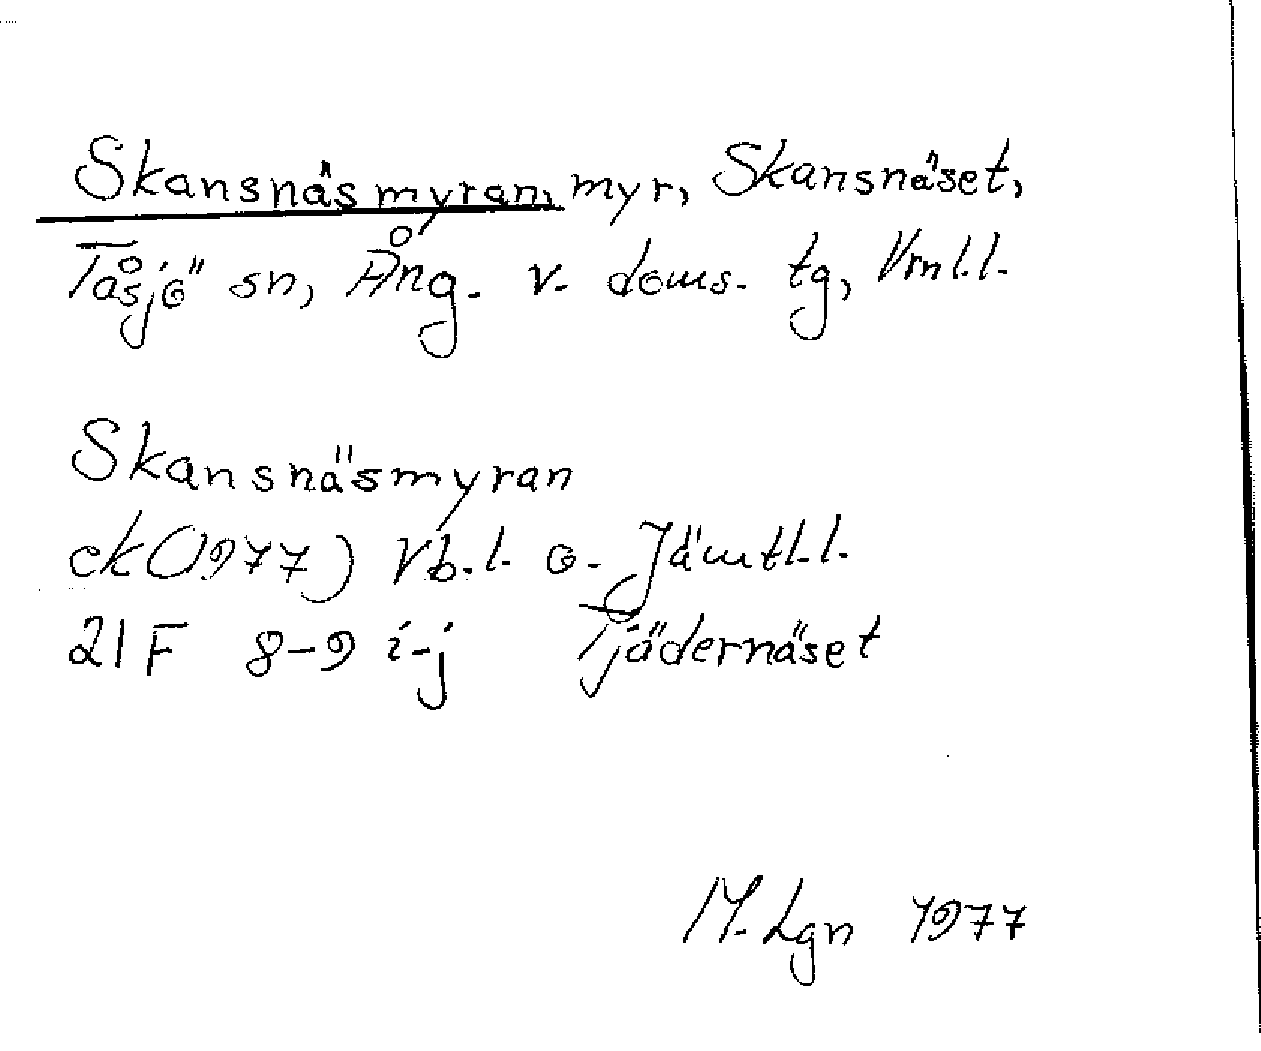 Skansnäsmyran, myr, Skansnäset,
Tåsjö sn, Ång. v. doms. tg, Vrnl.l.
Skansnäsmyran
ek (1977) Vb.l. o. Jämtl.l.
21F 8-9 i-j Tjädernäset
M. Lgn 1977